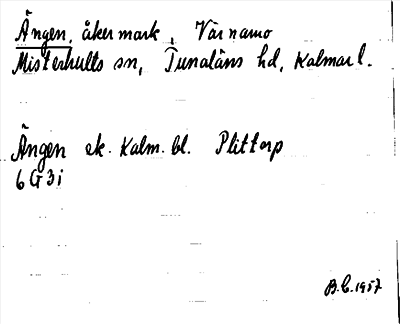 Ängen, åkermark, Värnamo
Misterhults sn, Tunaläns hd, Kalmar l.
Ängen ek. Kalm. bl. Plittorp
6G3i
B.C. 1957